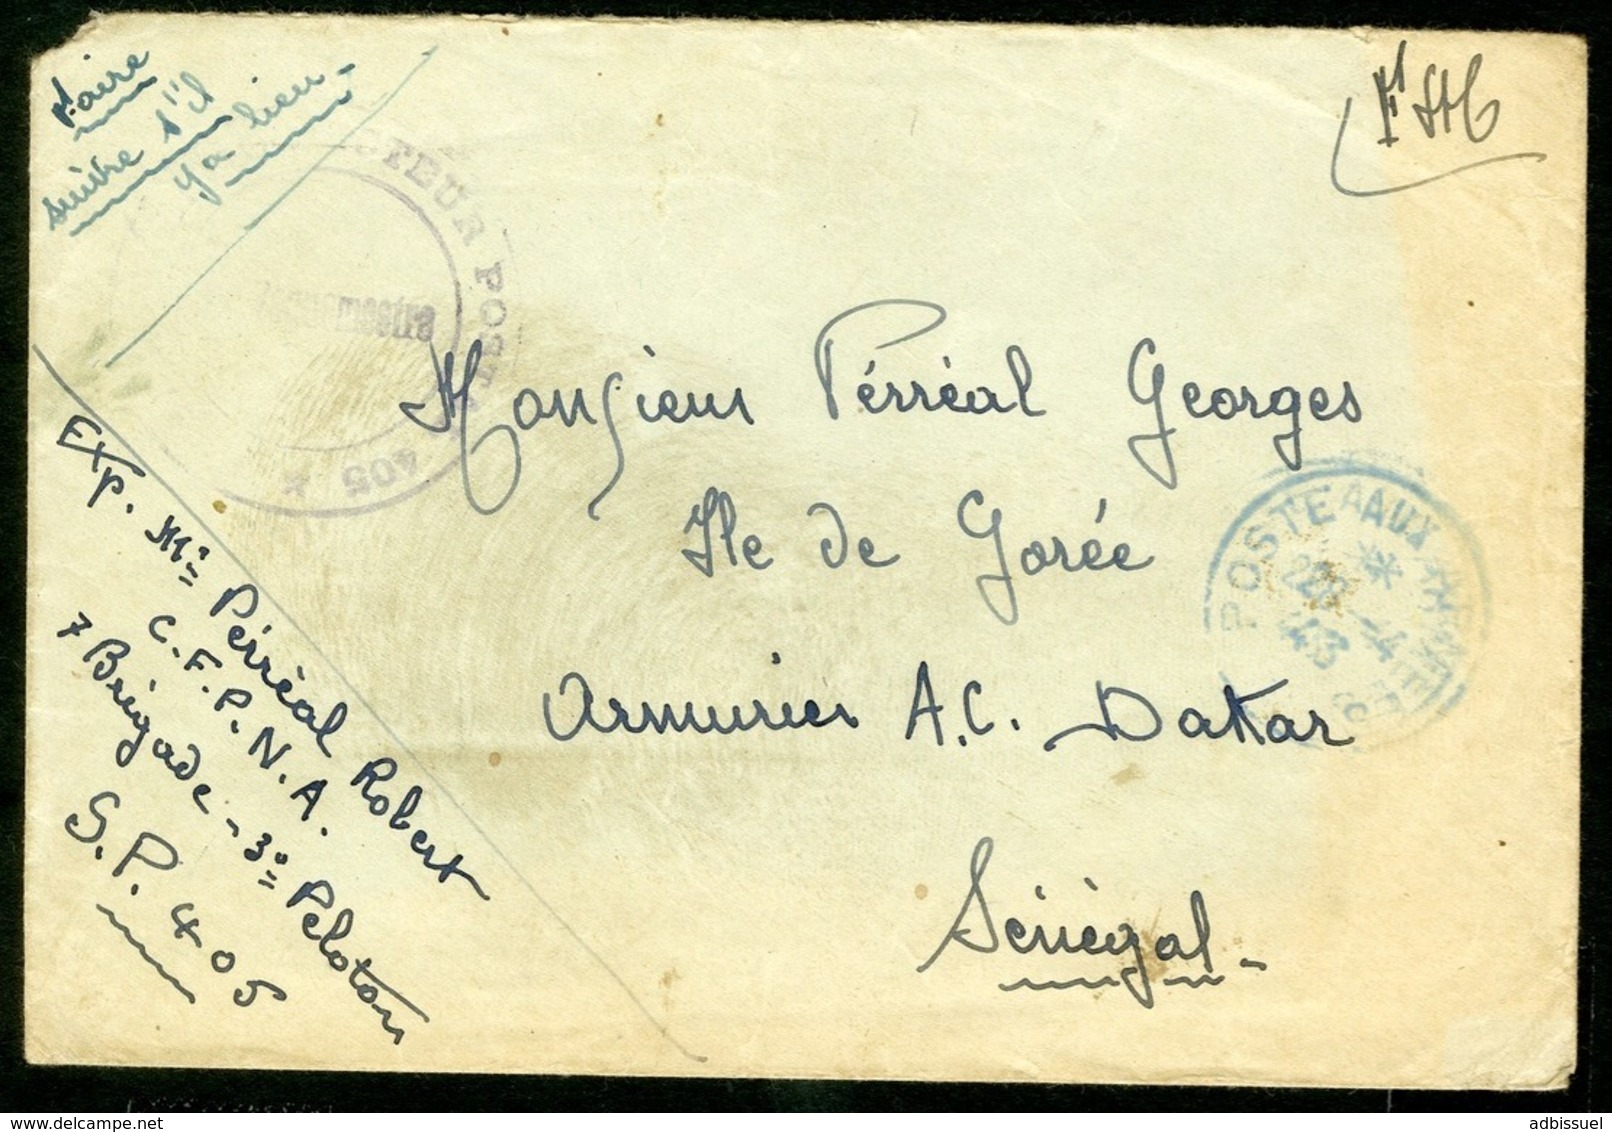 Faire
suivre s'il
y a lieu -
FM
SECTEUR POSTAL
405 *
Vaguemestre
Monsieur Pérréal Georges
Ile de Gorée
Armurier A.C. Dakar
Sénégal -
POSTE AUX ARMEES
*
22 - 4
43
Exp. Mr Pérréal Robert
C.F.P.N.A.
7 Brigade - 3e Peloton
S.P. 405
adbissuel